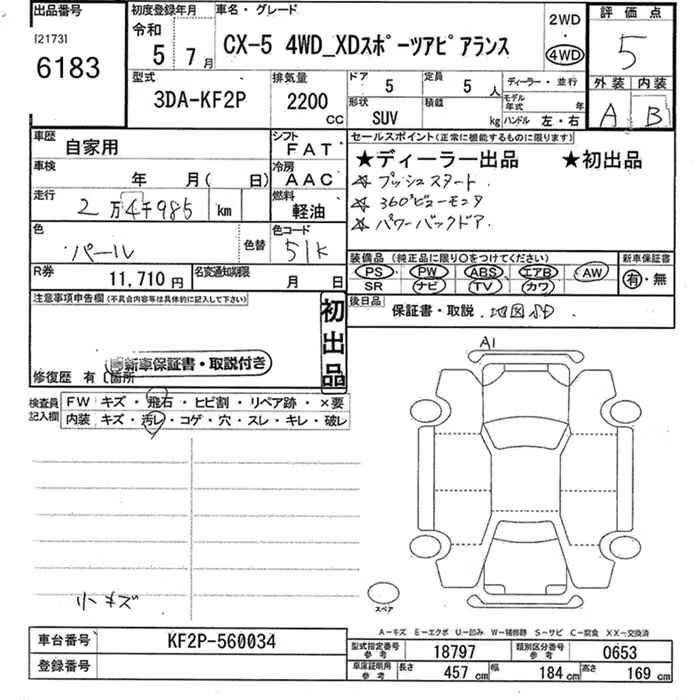 出品番号
[2173]
6183
初度登録年月
令和
5 7月
車名・グレード
CX-5 4WD_XDスポーツアピアランス
2WD
・
4WD
評価点
5
外装 内装
A B
型式
3DA-KF2P
排気量
2200
CC
ドア
5
定員
5人
ディーラー・並行
形状
SUV
積載
kg
モデル年式
年
ハンドル 左・右
車歴
自家用
シフト
FAT
車検
年 月( 日)
冷房
AAC
走行
2万4千985 km
燃料
軽油
色
パール
色替
色コード
51K
R券
11,710円
名変通知期限
月 日
セールスポイント(正常に機能するものに限ります)
★ディーラー出品 ★初出品
☆ プッシュスタート
☆ 360°ビューモニタ
☆ パワーバックドア
装備品 (純正品に限り○をつけてください)
PS PW ABS エアB AW
SR ナビ TV カワ
新車保証書
有・無
後日品
保証書・取説 地図SD
注意事項申告欄(不具合内容等は具体的に記入して下さい)
初出品
新車保証書・取説付き
修復歴 有 [箇所
検査員記入欄
FW キズ・飛石・ヒビ割・リペア跡・×要
内装 キズ・汚レ・コゲ・穴・スレ・キレ・破レ
A1
小キズ
スペア
A-キズ E-エクボ U-凹み W-補修跡 S-サビ C-腐食 XX-交換済
車台番号
KF2P-560034
登録番号
型式指定番号
参考
18797
類別区分番号
参考
0653
車庫証明用
参考
長さ
457 cm
幅
184 cm
高さ
169 cm